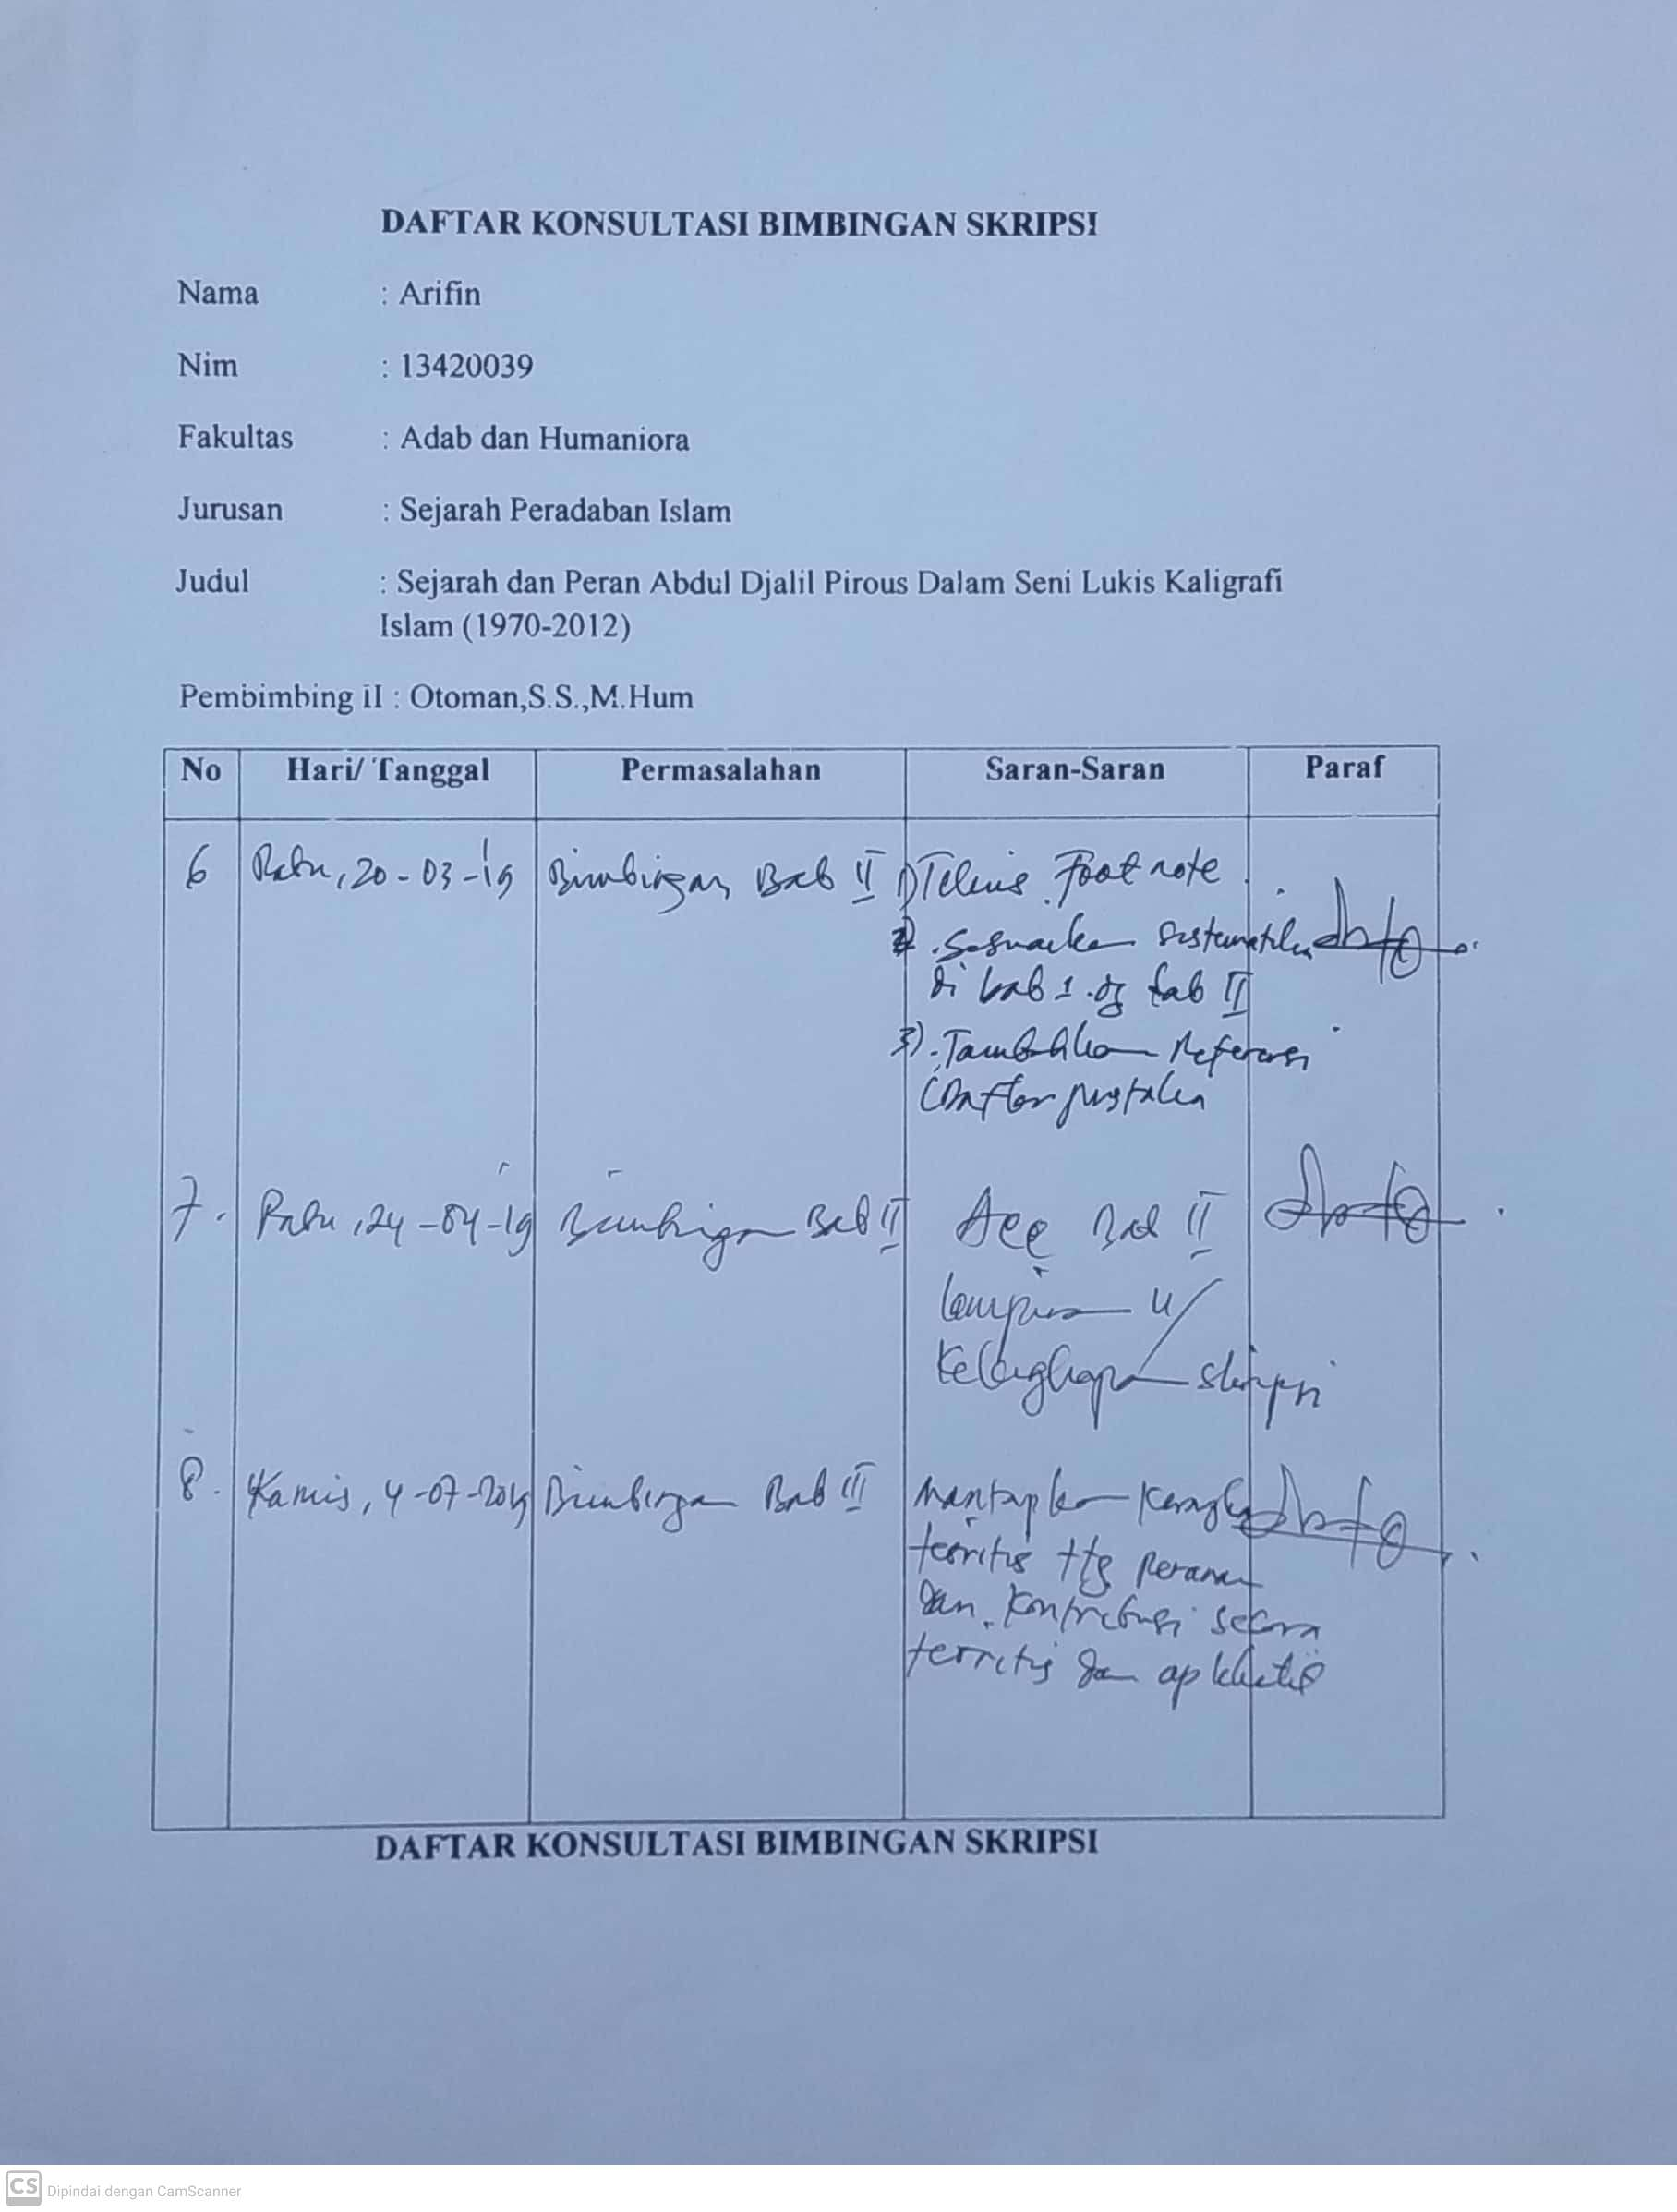 DAFTAR KONSULTASI BIMBINGAN SKRIPSI
Nama : Arifin
Nim : 13420039
Fakultas : Adab dan Humaniora
Jurusan : Sejarah Peradaban Islam
Judul : Sejarah dan Peran Abdul Djalil Pirous Dalam Seni Lukis Kaligrafi
Islam (1970-2012)
Pembimbing II : Otoman,S.S.,M.Hum
No Hari/ Tanggal Permasalahan Saran-Saran Paraf
6 Rabu, 20-03-19 Bimbingan Bab II 1) Foot note
2). Sesuaikan sistematika
di bab 1 dg bab II
3). Tambahkan Referensi
(Daftar pustaka
7. Rabu, 24-04-19 Bimbingan Bab II Acc Bab II
lampiran u/
Kelengkapan skripsi
8. Kamis, 4-07-2019 Bimbingan Bab III Mantapkan kerangka
teoritis ttg peranan
dan kontribusi secara
teoritis dan aplikatif
DAFTAR KONSULTASI BIMBINGAN SKRIPSI
CS Dipindai dengan CamScanner